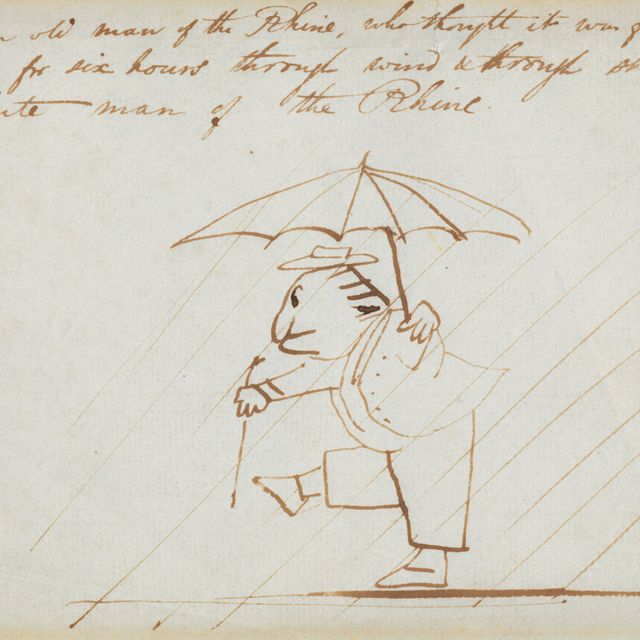 old man of the Rhine, who thought it was
for six hours through wind & through
man of the Rhine.